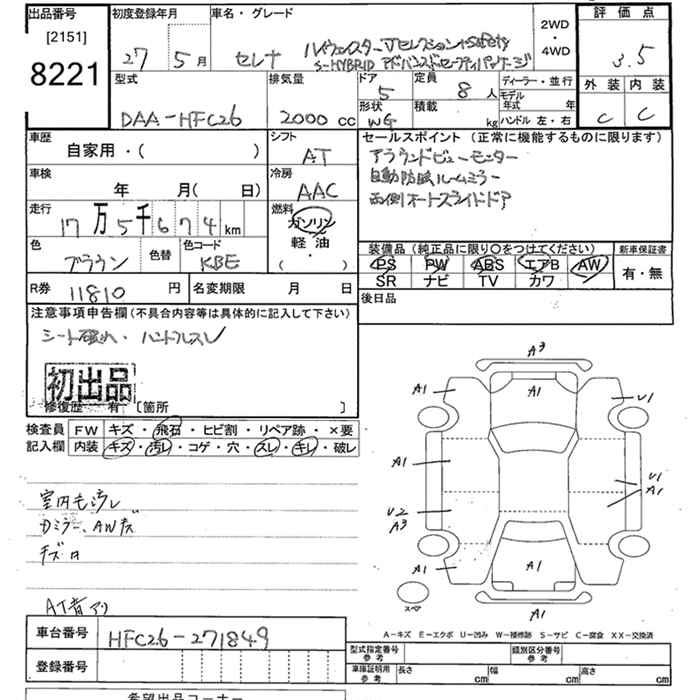 出品番号
[2151]
8221
初度登録年月
27 年 5 月
車名・グレード
セレナ
ハイウェイスターVセレクション+Safety
S-HYBRID アドバンスドセーフティパッケージ
2WD
・
4WD
評価点
3.5
外装 内装
C C
型式
DAA-HFC26
排気量
2000 cc
ドア
5
定員
8 人
形状
WG
積載
kg
ディーラー・並行
モデル
年式 年
ハンドル 左・右
車歴
自家用・( )
シフト
AT
セールスポイント (正常に機能するものに限ります)
アラウンドビューモニター
自動防眩ルームミラー
両側オートスライドドア
車検
年 月( 日)
冷房
AAC
走行
17 万 5 千 6 7 4 km
燃料
ガソリン
軽・油
( ・ )
色
ブラウン
色替
色コード
KBE
装備品 (純正品に限り〇をつけてください)
PS PW ABS エアB AW
SR ナビ TV カワ
新車保証書
有・無
R券 11810 円
名変期限 月 日
後日品
注意事項申告欄 (不具合内容等は具体的に記入して下さい)
シート破れ・ハンドルスレ
初出品
修復歴 有 [箇所 ]
検査員
記入欄
FW キズ・飛石・ヒビ割・リペア跡・×要
内装 キズ・汚レ・コゲ・穴・スレ・キレ・破レ
室内毛汚レ
Dミラー、AWガ
キズ
AT音アリ
A3
A1
A1
A1
U1
A1
U1
A1
U2
A3
A1
A1
A1
A1
スペア
A-キズ E-エクボ U-凹み W-補修跡 S-サビ C-腐食 XX-交換済
車台番号
HFC26-271849
登録番号
型式指定番号
参考
類別区分番号
参考
車庫証明用
参考
長さ cm
幅 cm
高さ cm
希望出品コーナー